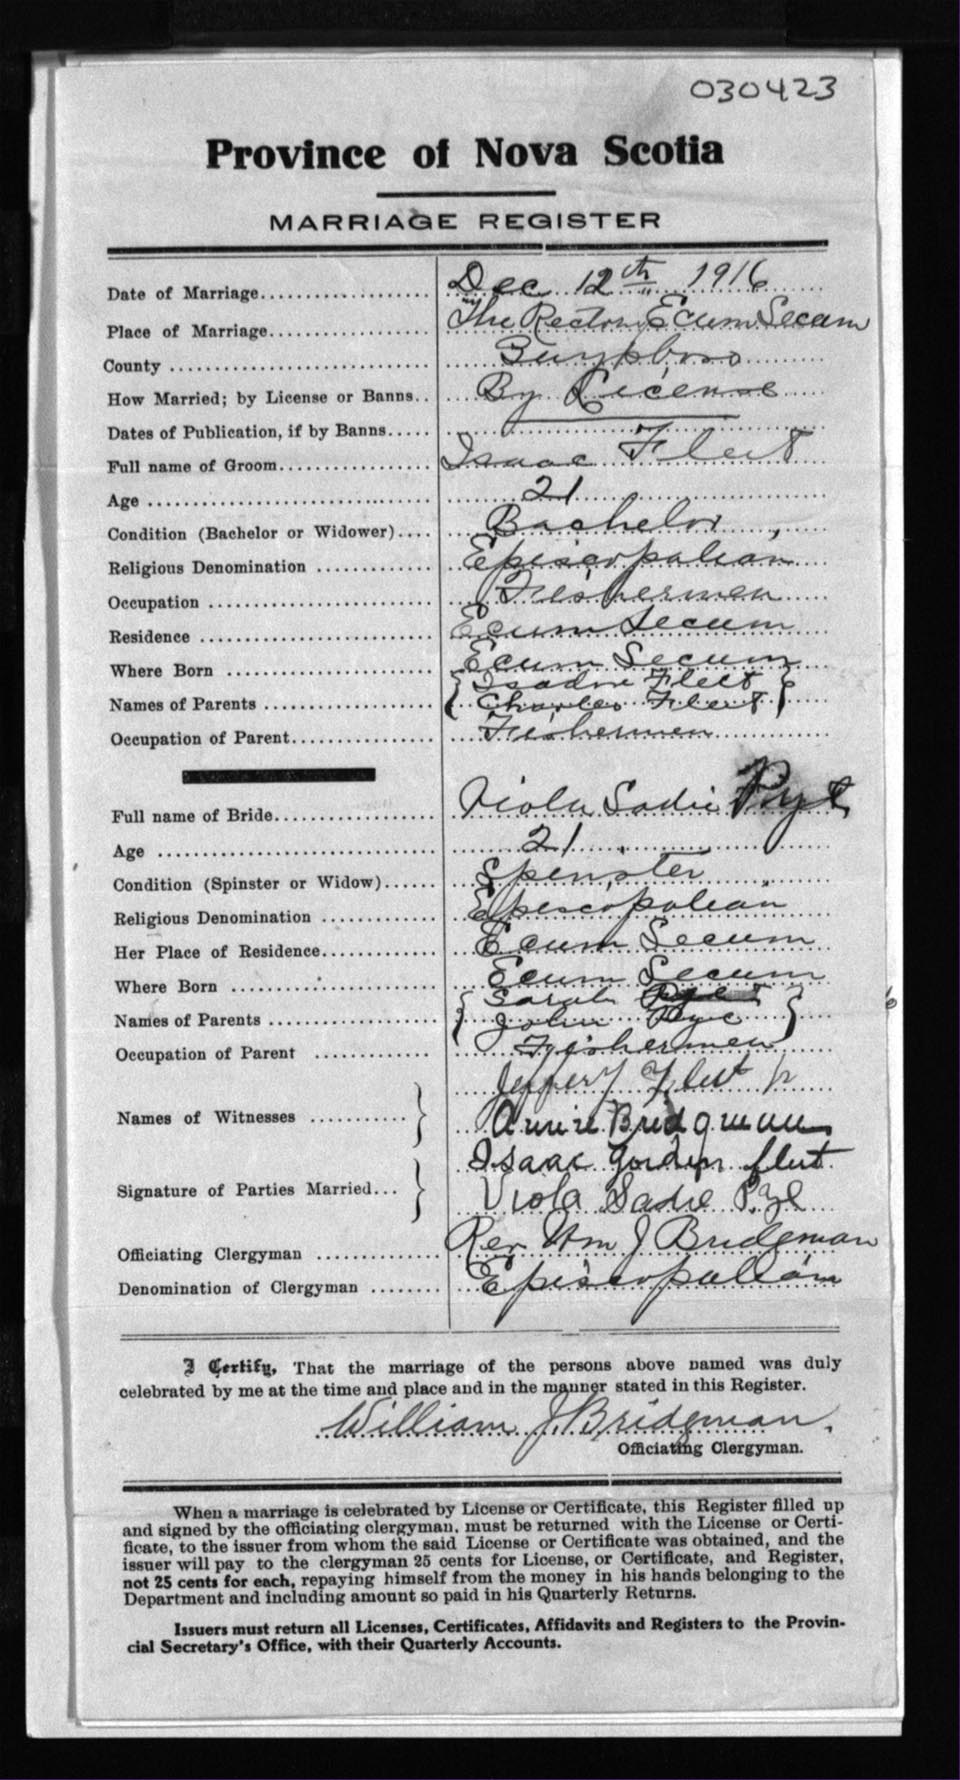 030423
Province of Nova Scotia
MARRIAGE REGISTER
Date of Marriage Dec 12th 1916
Place of Marriage The Rectory Ecum Secum
County
How Married; by License or Banns By License
Dates of Publication, if by Banns
Full name of Groom Isaac Fleet
Age 21
Condition (Bachelor or Widower) Bachelor
Religious Denomination Episcopalian
Occupation Fishermen
Residence Ecum Secum
Where Born Ecum Secum
Isadore Fleet
Names of Parents Charles Fleet
Occupation of Parent Fishermen
Full name of Bride Viola Sadie Pye
Age 21
Condition (Spinster or Widow) Spenster
Religious Denomination Episcopalian
Her Place of Residence Ecum Secum
Where Born Ecum Secum
Sarah Pye
Names of Parents John Pye
Occupation of Parent Fishermen
Jeffery Fleet Jr
Names of Witnesses Annie Bridgman
Isaac Gordon fleet
Signature of Parties Married Viola Sadie Pye
Officiating Clergyman Rev Wm J Bridgman
Denomination of Clergyman Episcopalian
I Certify, That the marriage of the persons above named was duly
celebrated by me at the time and place and in the manner stated in this Register.
William J. Bridgman.
Officiating Clergyman.
When a marriage is celebrated by License or Certificate, this Register filled up
and signed by the officiating clergyman, must be returned with the License or Certi-
ficate, to the issuer from whom the said License or Certificate was obtained, and the
issuer will pay to the clergyman 25 cents for License, or Certificate, and Register,
not 25 cents for each, repaying himself from the money in his hands belonging to the
Department and including amount so paid in his Quarterly Returns.
Issuers must return all Licenses, Certificates, Affidavits and Registers to the Provin-
cial Secretary's Office, with their Quarterly Accounts.